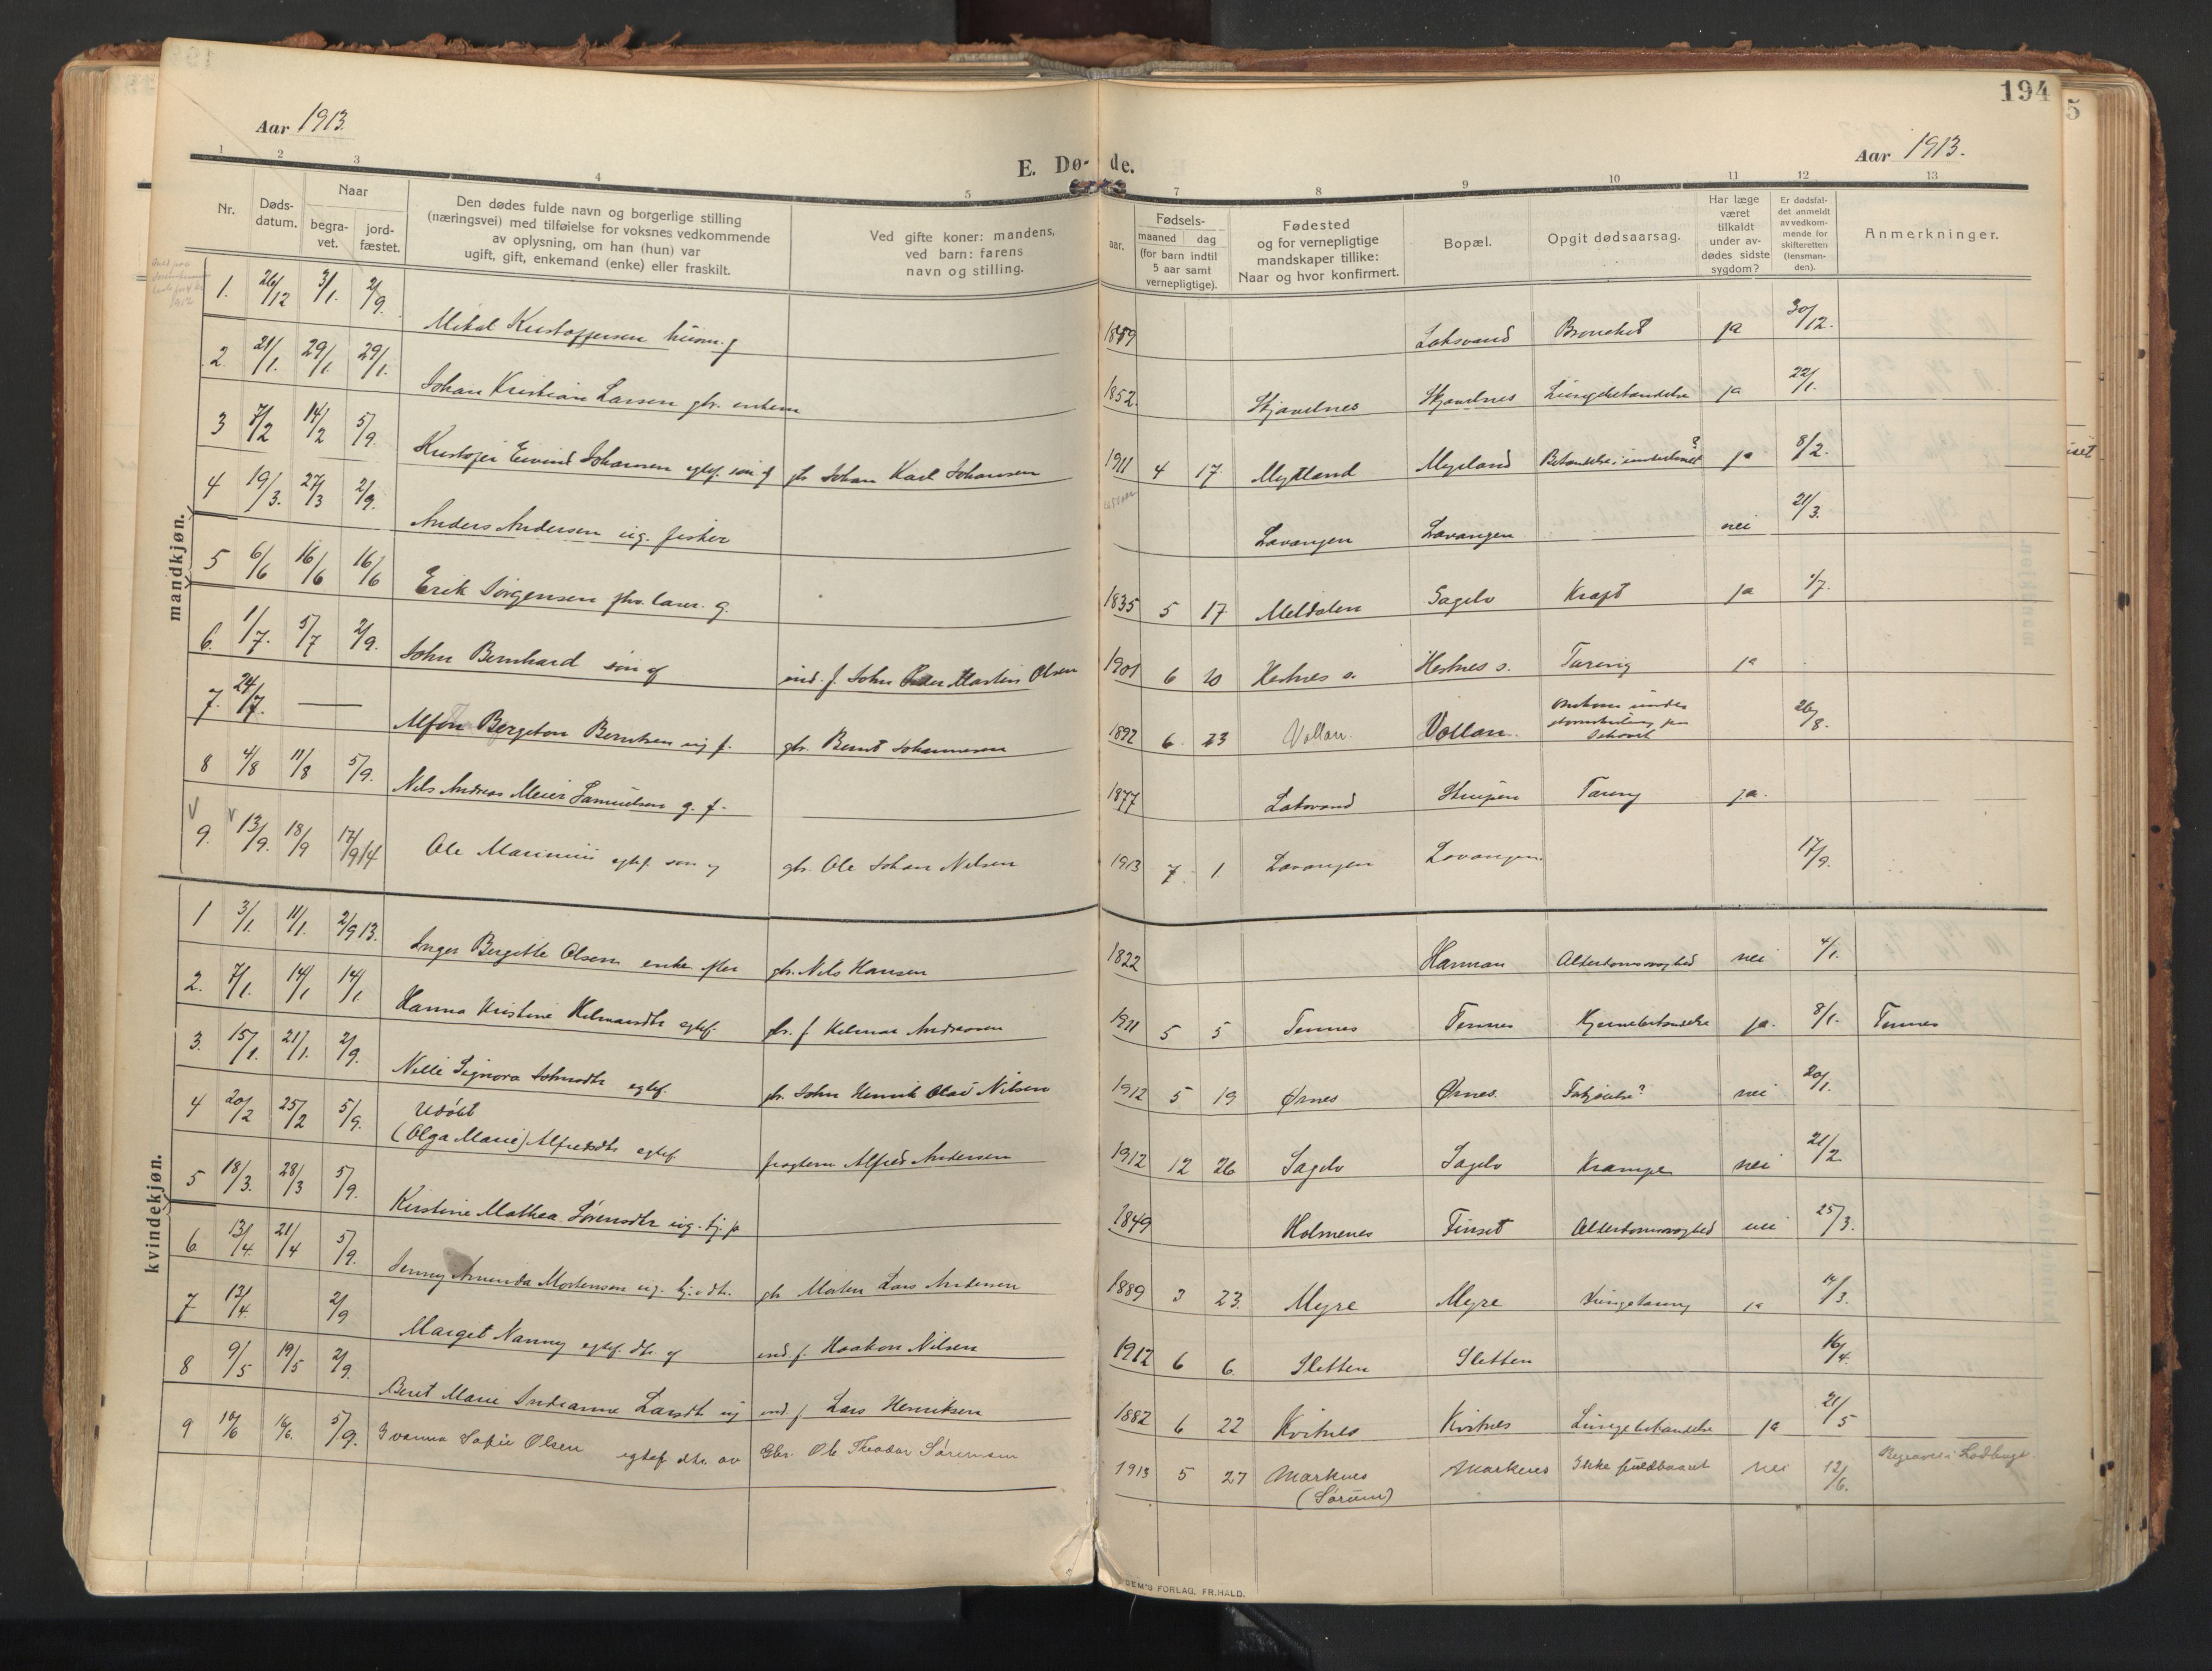 194
5
Aar 1913.
E. Dø- de.
Aar 1913.
1 2 3 4 5 7 8 9 10 11 12 13
Nr.
Døds-
datum.
Naar
begra-
vet.
jord-
fæstet.
Den dødes fulde navn og borgerlige stilling
(næringsvei) med tilføielse for voksnes vedkommende
av oplysning, om han (hun) var
ugift, gift, enkemand (enke) eller fraskilt.
Ved gifte koner: mandens,
ved barn: farens
navn og stilling.
aar.
Fødsels-
maaned dag
(for barn indtil
5 aar samt
vernepligtige).
Fødested
og for vernepligtige
mandskaper tillike:
Naar og hvor konfirmert.
Bopæl.
Opgit dødsaarsag.
Har læge
været
tilkaldt
under av-
dødes sidste
sygdom?
Er dødsfal-
det anmeldt
av vedkom-
mende for
skifteretten
(lensman-
den).
Anmerkninger.
mandkjøn.
1. 26/12 3/1. 2/9. Mikal Kristoffersen husm. g Laksvand Bronchit ja 30/12.
2 21/1. 29/1. 29/1. Johan Kristian Larsen gbr. enkem 1852. Skjævelnes Skjævelnes Lungebetændelse ja 22/1.
3 7/2 14/2 5/9. Kristofer Eivind Johansen egtef. søn af gb Johan Karl Johansen 1911 4 17. Mytland Myrland ja 8/2.
4 19/3. 27/3 2/9. Anders Andersen ug. fisker Lavangen Lavangen nei 21/3.
5 6/6 16/6 16/6 Erik Jørgensen g. 1835 5 17. Meldalen Sagelv Kræft ja 1/7.
6. 1/7. 5/7 2/9. John Bernhard søn af ind. f. John Peder Martin Olsen 1901 6 20 Hestnes s. Hestnes s. Tæring ja
7. 24/7. — Alfon Bergeton Berntsen ug f. gbr. Bernt Johannesen 1892 6 23 Vollan. Vollan. 26/8.
8 4/8 11/8 5/9. Nils Andreas Meier Samuelsen g. f. 1877 Laksvand Tæring ja.
9. 13/9. 18/9 17/9 14 Ole Marinius egtef. søn af gbr. Ole Johan Nilsen 1913 7. 1. Lavangen Lavangen 17/9.
kvindekjøn.
1 3/1. 11/1. 2/9 13. Inger Bergitte Olsen enke efter gbr. Nils Hansen 1822 Hamran Alderdomssvaghed nei 4/1.
2. 7/1. 14/1 14/1 Hanna Kristine Helmersdtr egtef. gbr. f Helmer Andreasen 1911 5 5 Tennes Tennes Hjernebetændelse ja. 8/1. Tennes
3. 15/1. 21/1. 2/9. Nelli Signora Johnsdtr egtef. gbr. John Henrik Olai Nilsen 1912 5 19 Ørnes Ørnes. Forkjølelse? nei 20/1.
4 20/2 25/2 5/9. Udøbt
(Olga Marie) Alfredsdtr egtef. Alfred Andersen 1912 12 26 Sagelv Sagelv Krampe nei 21/2
5 18/3. 28/3 5/9. Kirstine Mathea Sørensdtr ug. tj. p 1849 Holmenes Finset Alderdomssvaghed nei 25/3.
6. 13/4. 21/4 5/9. Jenny Amanda Mortensen ug. gbr Morten Lars Andersen 1889 3 23. Myre Myre Lungetæring ja
7 13/4. 2/9 Marget Nanny egtef. dtr. af ind f. Haakon Nilsen 1912 6 6. Sletten Sletten 16/4.
8 9/5 19/5 2/9. Beret Marie Indianne Larsdtr ug ind f. Lars Henriksen 1882 6 22 Kvitnes Kvitnes Lungebetændelse ja 21/5
9 10/6 16/6. 5/9. Ivanna Sofie Olsen egtef. dtr. av Gbr. Ole Theodor Sørensen 1913 5 27 Marknes
(Sørum) Markenes Ikke fuldbaaret nei 12/6.
DEM'S FORLAG, FR. HALD.